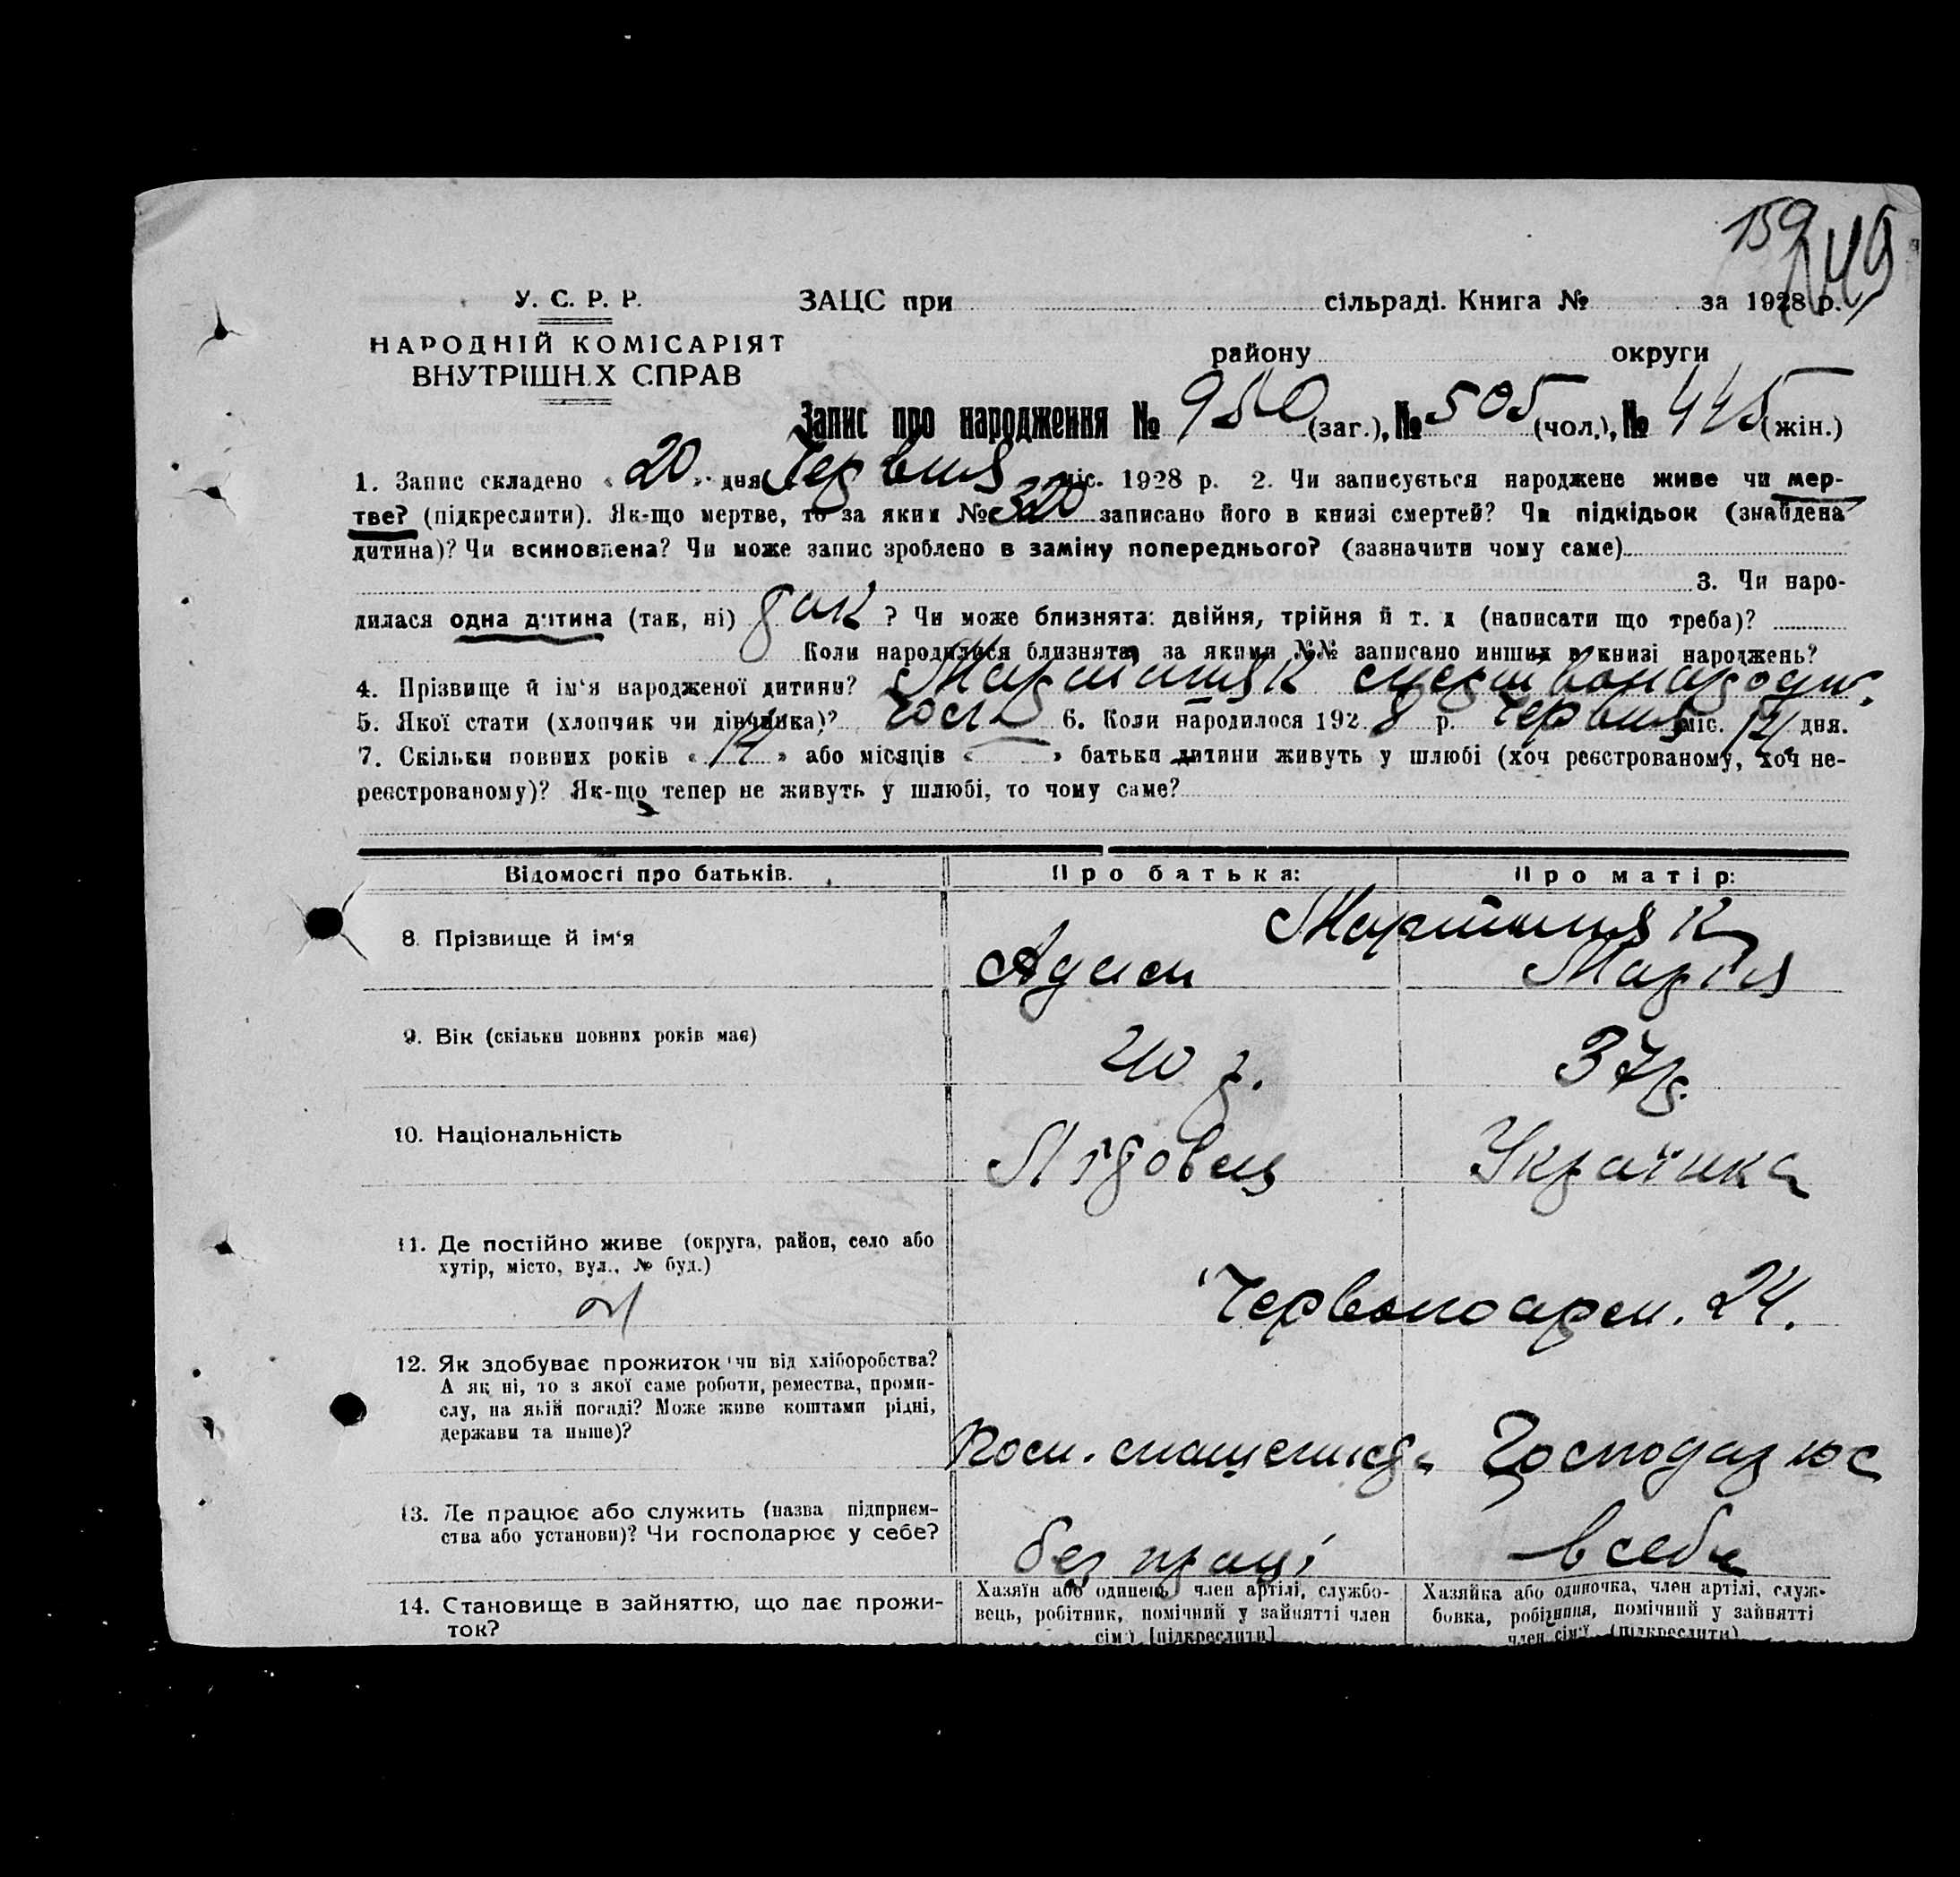 159
249
У. С. Р. Р. ЗАЦС при сільраді. Книга № за 1928 р.
НАРОДНІЙ КОМІСАРІЯТ
ВНУТРІШН.Х СПРАВ
району округи
Запис про народження № 950 (заг.), № 505 (чол.), № 445 (жін.)
1. Запис складено « 20 » дня Червня міс. 1928 р. 2. Чи записується народжене живе чи мер-
тве? (підкреслити). Як-що мертве, то за яким № 320 записано його в книзі смертей? Чи підкідьок (знайдена
дитина)? Чи всиновлена? Чи може запис зроблено в заміну попереднього? (зазначити чому саме)
3. Чи наро-
дилася одна дитина (так, ні) так ? Чи може близнята: двійня, трійня й т. д (написати що треба)?
Коли народилися близнята, за якими №№ записано инших в книзі народжень?
4. Прізвище й ім'я народженої дитини? Мартиняк мертвонародж.
5. Якої стати (хлопчик чи дівчинка)? чол 6. Коли народилося 1928 р. Червня міс. дня.
7. Скільки повних років « 14 » або місяців « — » батьки дитини живуть у шлюбі (хоч реєстрованому, хоч не-
реєстрованому)? Як-що тепер не живуть у шлюбі, то чому саме?
Відомості про батьків. Про батька: Про матір:
8. Прізвище й ім'я Мартиняк
Адам Марія
9. Вік (скільки повних років має) 40 р. 37 р.
10. Національність Літовець Українка
11. Де постійно живе (округа, район, село або
хутір, місто, вул., № буд.)
Червоноарм. 24.
12. Як здобуває прожиток чи від хліборобства?
А як ні, то з якої саме роботи, ремества, проми-
слу, на якій посаді? Може живе коштами рідні,
держави та инше)?
Господарює
13. Де працює або служить (назва підприєм-
ства або установи)? Чи господарює у себе?
без праці в себе
14. Становище в зайняттю, що дає прожи-
ток?
Хазяїн або одинець, член артілі, службо-
вець, робітник, помічний у зайнятті член
сім'ї [підкреслити]
Хазяйка або одиночка, член артілі, служ-
бовка, робітниця, помічний у зайнятті
член сім'ї (підкреслити)